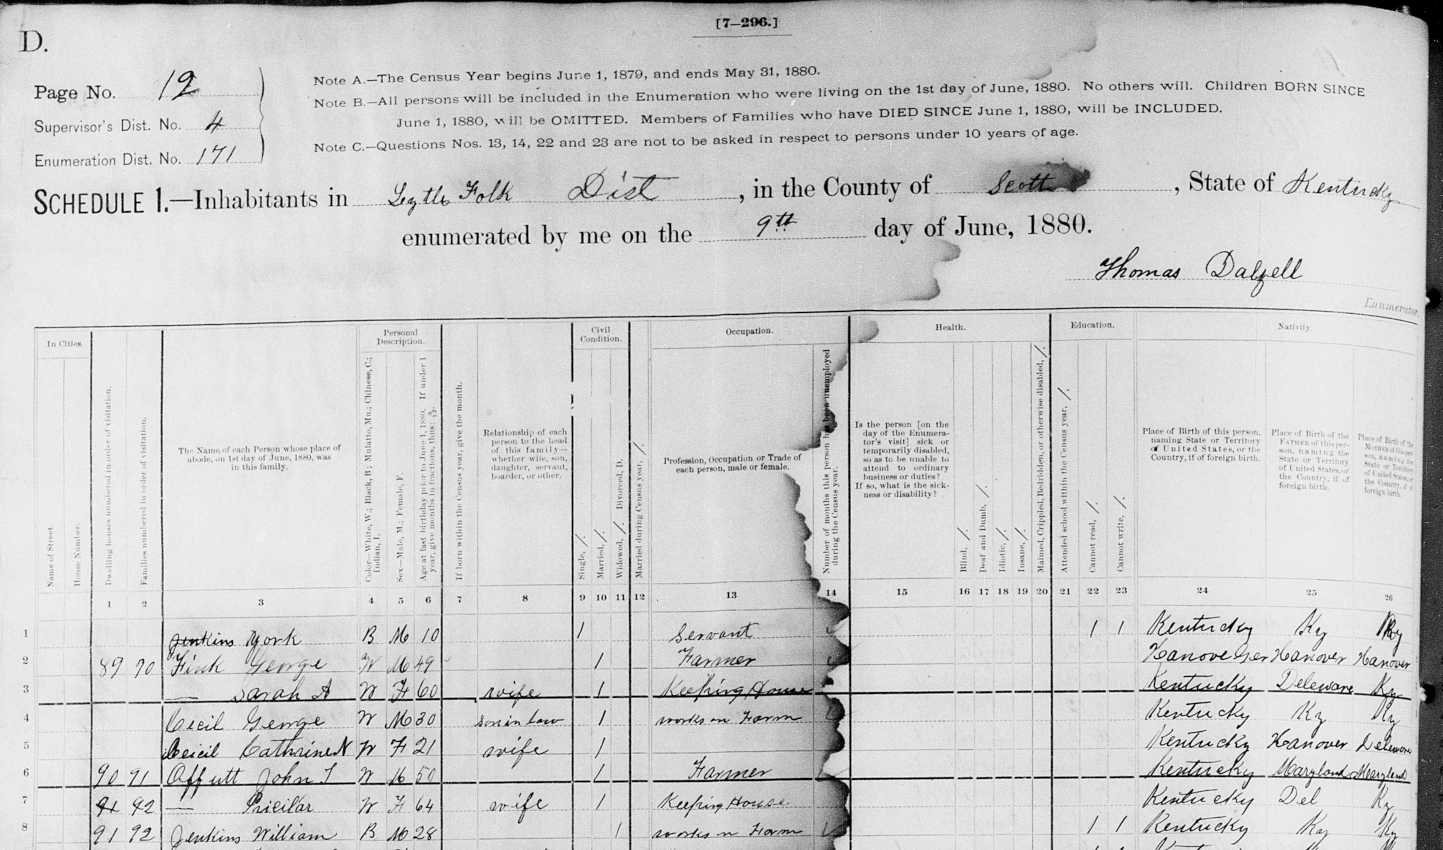 [7–296.]
D.
Page No. 12
Supervisor's Dist. No. 4
Enumeration Dist. No. 171
Note A.—The Census Year begins June 1, 1879, and ends May 31, 1880.
Note B.—All persons will be included in the Enumeration who were living on the 1st day of June, 1880. No others will. Children BORN SINCE
June 1, 1880, will be OMITTED. Members of Families who have DIED SINCE June 1, 1880, will be INCLUDED.
Note C.—Questions Nos. 13, 14, 22 and 23 are not to be asked in respect to persons under 10 years of age.
SCHEDULE 1.—Inhabitants in Lytls Folk Dist, in the County of Scott, State of Kentucky
enumerated by me on the 9th day of June, 1880.
Thomas Dalzell
Enumerator.
In Cities.
Name of Street.
House Number.
Dwelling houses numbered in order of visitation.
Families numbered in order of visitation.
The Name of each Person whose place of
abode, on 1st day of June, 1880, was
in this family.
Personal
Description.
Color—White, W.; Black, B.; Mulatto, Mu.; Chinese, C.;
Indian, I.
Sex—Male, M.; Female, F.
Age at last birthday prior to June 1, 1880. If under 1
year, give months in fractions, thus: 3/12.
If born within the Census year, give the month.
Relationship of each
person to the head
of this family—
whether wife, son,
daughter, servant,
boarder, or other.
Civil
Condition.
Single, /.
Married, /.
Widowed, /. Divorced, D.
Married during Census year, /.
Occupation.
Profession, Occupation or Trade of
each person, male or female.
Number of months this person has been unemployed
during the Census year.
Health.
Is the person [on the
day of the Enumera-
tor's visit] sick or
temporarily disabled,
so as to be unable to
attend to ordinary
business or duties?
If so, what is the sick-
ness or disability?
Blind, /.
Deaf and Dumb, /.
Idiotic, /.
Insane, /.
Maimed, Crippled, Bedridden, or otherwise disabled, /.
Education.
Attended school within the Census year, /.
Cannot read, /.
Cannot write, /.
Nativity.
Place of Birth of this person,
naming State or Territory
of United States, or the
Country, if of foreign birth.
Place of Birth of the
FATHER of this per-
son, naming the
State or Territory
of United States, or
the Country, if of
foreign birth.
Place of Birth of the
MOTHER of this per-
son, naming the
State or Territory
of United States, or
the Country, if of
foreign birth.
1 2 3 4 5 6 7 8 9 10 11 12 13 14 15 16 17 18 19 20 21 22 23 24 25 26
1 Jenkins York B M 10 1 Servant 1 1 Kentucky Ky Ky
2 89 90 Fink George W M 49 1 Farmer Hanover Ger Hanover Hanover
3 — Sarah A W F 60 wife 1 Keeping House Kentucky Deleware Ky
4 Cecil George W M 30 son in law 1 works on Farm Kentucky Ky Ky
5 Ceicil Cathrine N W F 21 wife 1 Kentucky Hanover Deleware
6 90 91 Affutt John T W M 50 1 Farmer Kentucky Maryland Maryland
7 92 — Pricilar W F 64 wife 1 Keeping House Kentucky Del Ky
8 91 92 Jenkins William B M 28 1 works on Farm 1 1 Kentucky Ky Ky